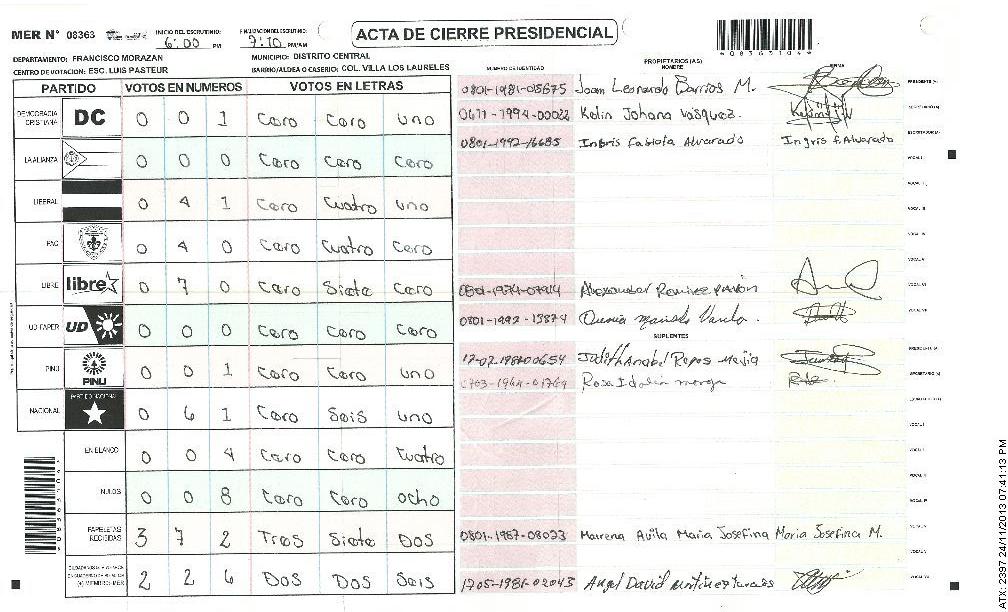 MER N° 08363
INICIO DEL ESCRUTINIO: 6:00 PM
FINALIZACION DEL ESCRUTINIO: 7:10 PM/AM
ACTA DE CIERRE PRESIDENCIAL
*08363104*
DEPARTAMENTO: FRANCISCO MORAZAN
MUNICIPIO: DISTRITO CENTRAL
CENTRO DE VOTACION: ESC. LUIS PASTEUR
BARRIO/ALDEA O CASERIO: COL. VILLA LOS LAURELES
PARTIDO VOTOS EN NUMEROS VOTOS EN LETRAS
DEMOCRACIA CRISTIANA DC 0 0 1 Cero Cero uno
LA ALIANZA 0 0 0 Cero Cero Cero
LIBERAL 0 4 1 Cero Cuatro uno
PAC 0 4 0 Cero Cuatro Cero
LIBRE libre 0 7 0 Cero Siete Cero
UD FAPER UD 0 0 0 Cero Cero Cero
PINU PINU 0 0 1 Cero Cero uno
NACIONAL PARTIDO NACIONAL 0 6 1 Cero Seis uno
EN BLANCO 0 0 4 Cero Cero Cuatro
NULOS 0 0 8 Cero Cero ocho
PAPELETAS RECIBIDAS 3 7 2 Tres Siete DOS
2 2 6 DOS DOS Seis
NUMERO DE IDENTIDAD
PROPIETARIOS (AS)
NOMBRE
FIRMA
0801-1981-05675 Joan Leonardo Barrios M. PRESIDENTE (A)
Kelin Johana Vasquez. SECRETARIO (A)
0801-1992-16685 Ingris Fabiola Alvarado Ingris F. Alvarado ESCRUTADOR (A)
VOCAL I
VOCAL II
VOCAL III
VOCAL IV
VOCAL V
Alexander Ramirez VOCAL VI
0801-1992-15874 VOCAL VII
SUPLENTES
Judith Anabel Reyes Mejia PRESIDENTE (A)
Rosa SECRETARIO (A)
ESCRUTADOR (A)
VOCAL I
VOCAL II
VOCAL III
VOCAL IV
0801-1987-08023 Mairena Avila Maria Josefina Maria Josefina M. VOCAL V
VOCAL VI
1705-1981-02043 Angel David VOCAL VII
ATX 2397 24/11/2013 07:41:13 PM